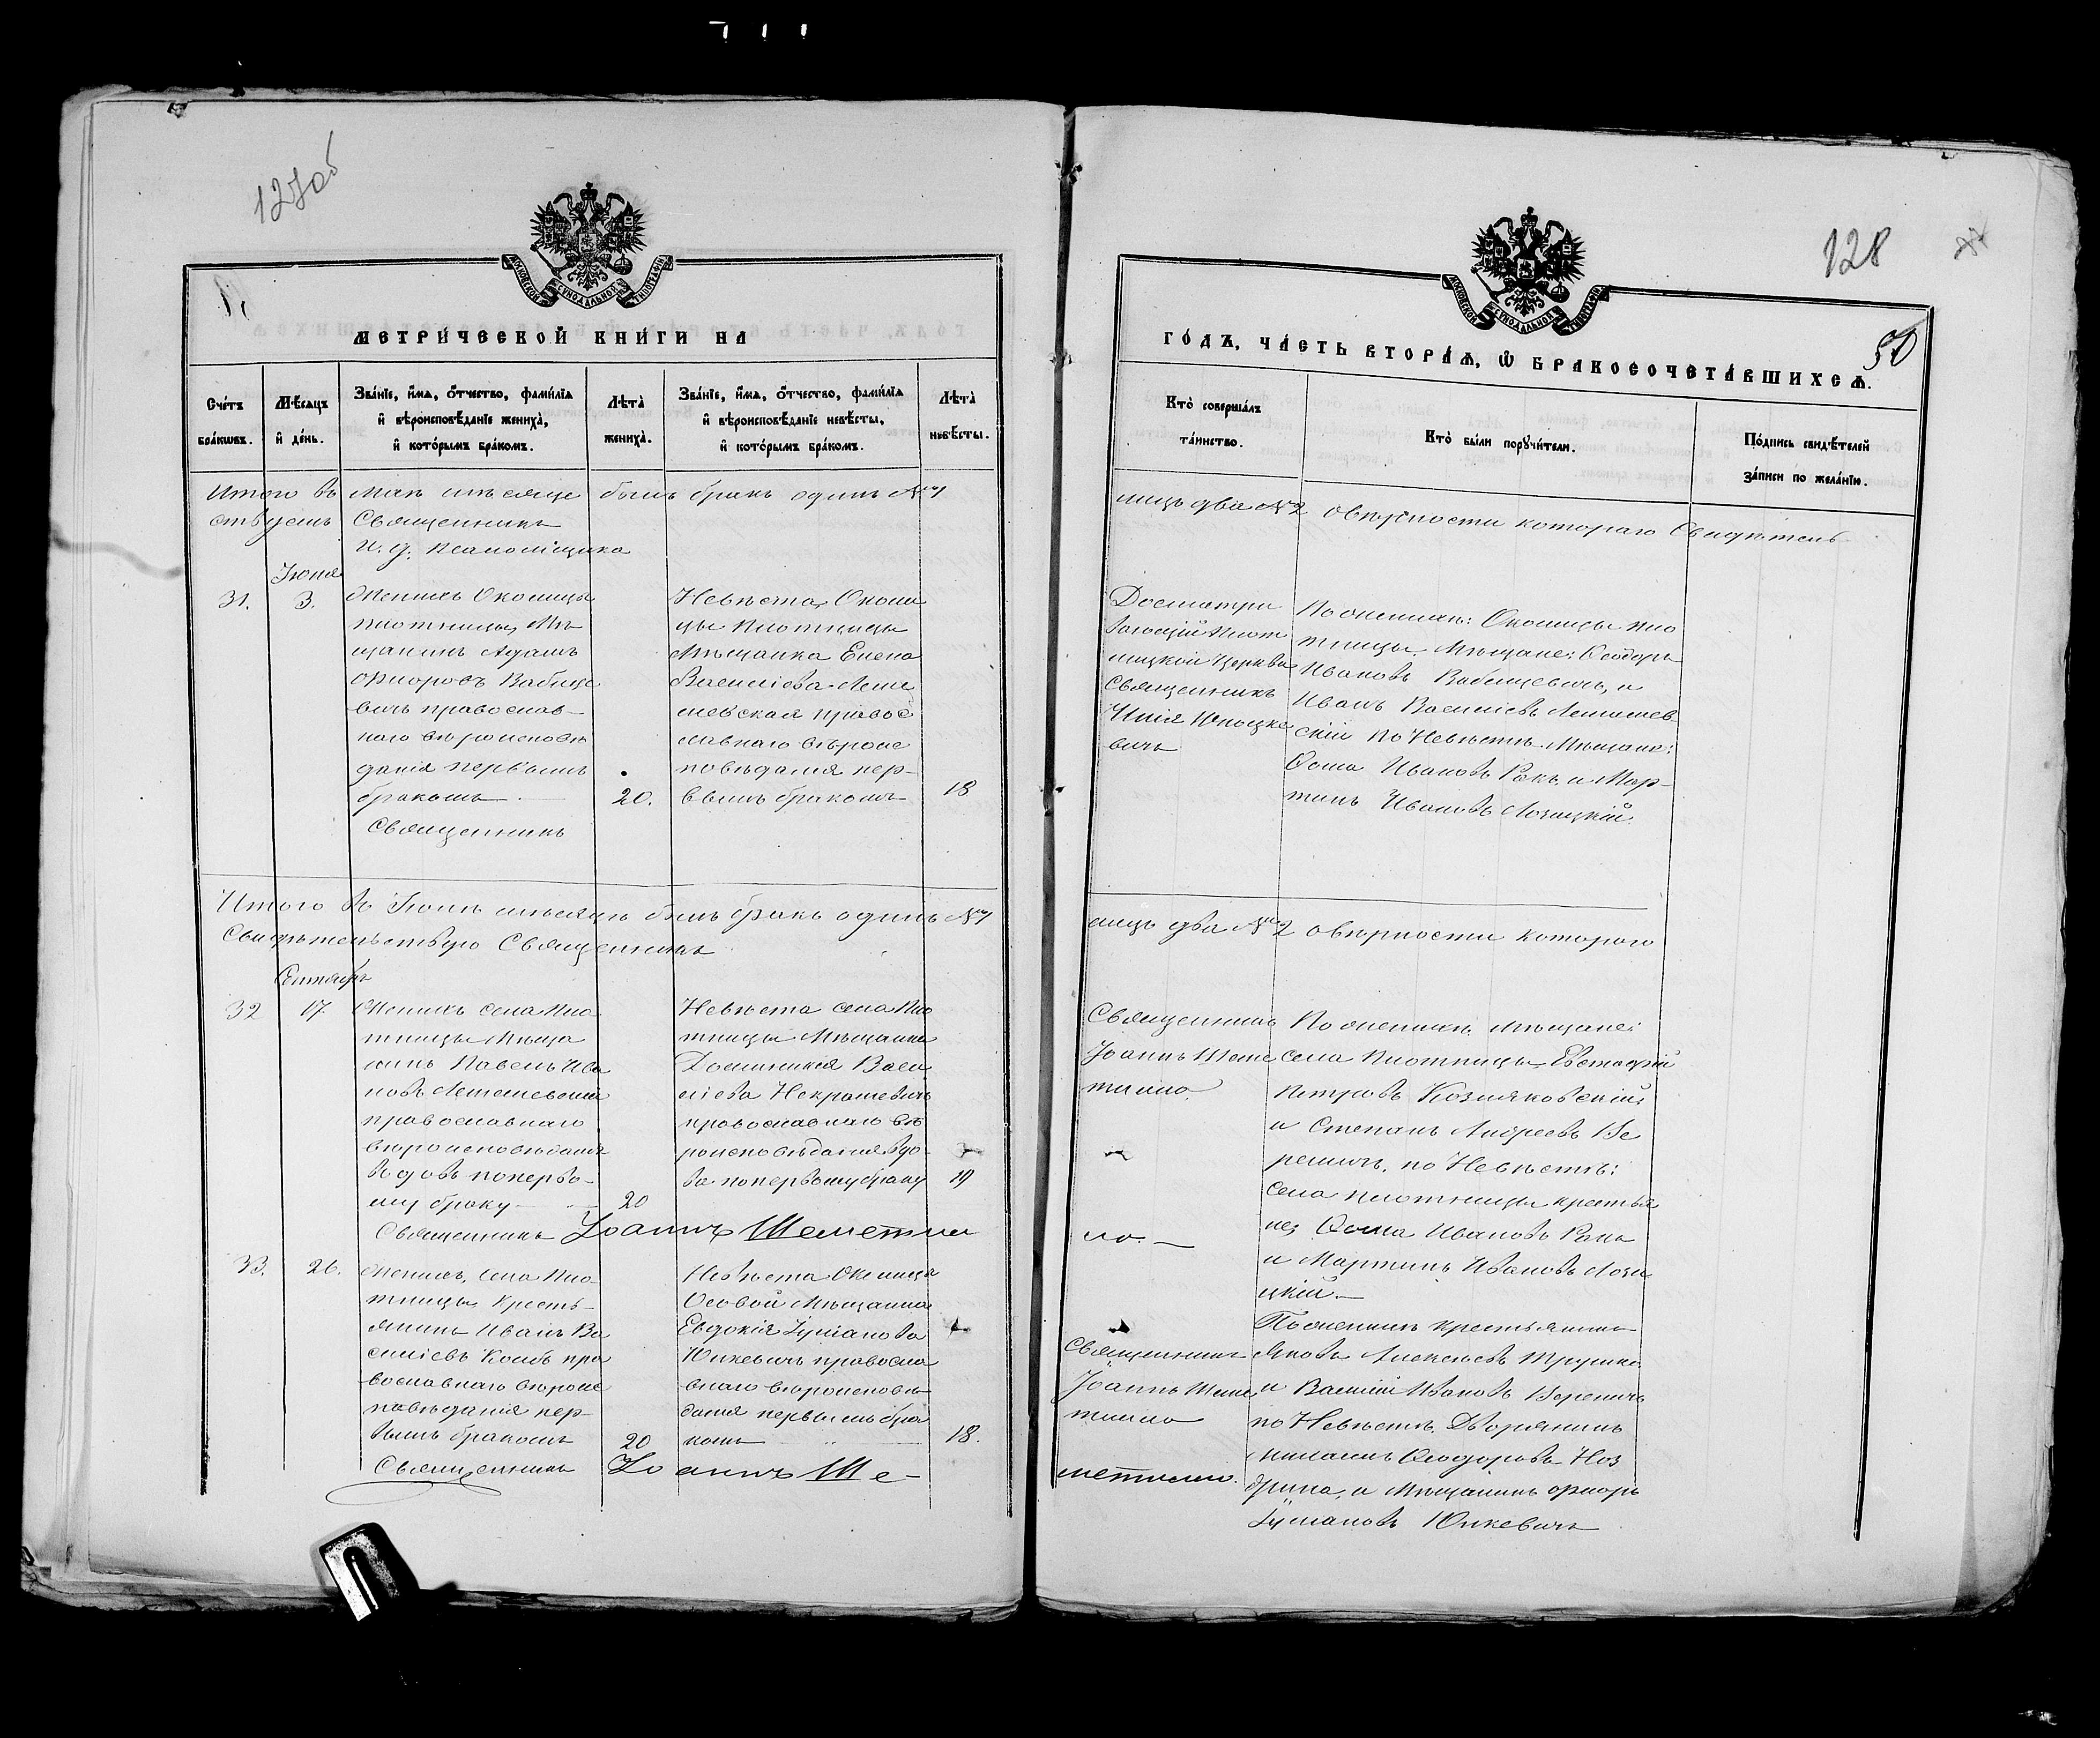 127об
МОСКОВСКОЙ СѴНОДАЛЬНОЙ ТИПОГРАФІИ
МЕТРИ́ЧЕСКОЙ КНИ́ГИ НА
Сче́тъ бра́кѡвъ.
Мѣ́сяцъ и҆ де́нь.
Зва́нїе, и҆́мѧ, ѻ҆́тчество, фамѝлїѧ
и҆ вѣроисповѣ́данїе жениха̀,
и҆ кото́рымъ бра́комъ.
Лѣта̀ жениха̀.
Зва́нїе, и҆́мѧ, ѻ҆́тчество, фамѝлїѧ
и҆ вѣроисповѣ́данїе невѣ́сты,
и҆ кото́рымъ бра́комъ.
Лѣта̀ невѣ́сты.
Итого въ Маѣ мѣсяце былъ бракъ одинъ №1
ствуемъ Священникъ
И. д. Псаломщика
Іюня
31.
3.
Женихъ Околицы
Плотницы, Мѣ
щанинъ Адамъ
Флоровъ Вабище
вичъ православ-
наго вѣроисповѣ
данія первымъ
бракомъ
20.
Священникъ
Невѣста, Околи
цы Плотницы
Мѣщанка Елена
Василіева Леме
шевская правос
лавнаго вѣроис
повѣданія пер-
вымъ бракомъ
18
Итого въ Іюнѣ мѣсяцѣ былъ бракъ одинъ №1
Свидѣтельствую Священникъ
Сентябрь
32
17.
Женихъ села Пло
тницы Мѣща
нинъ Павелъ Ива
новъ Лемешевскій
православнаго
вѣроисповѣданія
Вдовъ поперво-
му браку
20
Невѣста села Пло
тницы Мѣщанка
Доминикія Васи
ліева Некрашевичъ
православнаго вѣ
роисповѣданія вдо-
ва попервому браку
19
Священникъ Іоаннъ Шеметил
33.
26.
Женихъ, села Пло
тницы Кресть-
янинъ Иванъ Ва
силіевъ Колб пра
вославнаго вѣроис
повѣданія пер-
вымъ бракомъ
20
Невѣста Околицы
Осовой Мѣщанка
Евдокія Іуліанова
Юнкевичъ правосла
внаго вѣроисповѣ
данія первымъ бра
комъ
18.
Священникъ Іоаннъ Ше-
128
МОСКОВСКОЙ СѴНОДАЛЬНОЙ ТИПОГРАФІИ
50
ГО́ДЪ, ЧА́СТЬ ВТОРА́Ѧ, Ѡ҆ БРАКОСОЧЕТА́ВШИХСѦ.
Кто̀ соверша́лъ
та́инство.
Кто̀ бы́ли порꙋчи́тели.
По́дпись свидѣ́телей
за́писи по жела́нїю.
лицъ два №2 овѣрности котораго Свидѣтель
Досматри
вающій Плот
ницкой Церкви
Священникъ
вичъ
По женихѣ: Околицы Пло
тницы Мѣщане: Ѳеодоръ
Ивановъ Вабищевичъ, и
Иванъ Василіевъ Лемешев
скій По Невѣстѣ Мѣщане:
Ѳома Ивановъ Ракъ, и Мар-
тинъ Ивановъ Лозицкій.
лицъ два №2 овѣрности которого
Священникъ
Іоаннъ Шеме
тилло
ло. —
По женихѣ, Мѣщане:
села Плотницы Евстафій
Петровъ Козляковскій
и Степанъ Андреевъ Ве
ремичъ. по Невѣстѣ:
села Плотницы крестья
не: Ѳома Ивановъ Ракъ
и Мартинъ Ивановъ Лози
цкій.—
Священникъ
Іоаннъ Шеме
тилло
метилло.
По женихѣ Крестьянинъ
Яковъ Алексѣевъ Трушко
и Василій Ивановъ Веремичъ
по Невѣстѣ, Дворянинъ
Михаилъ Ѳеодоровъ Ноз
дрина, и Мѣщанинъ Флоръ
Іуліановъ Юнкевичъ